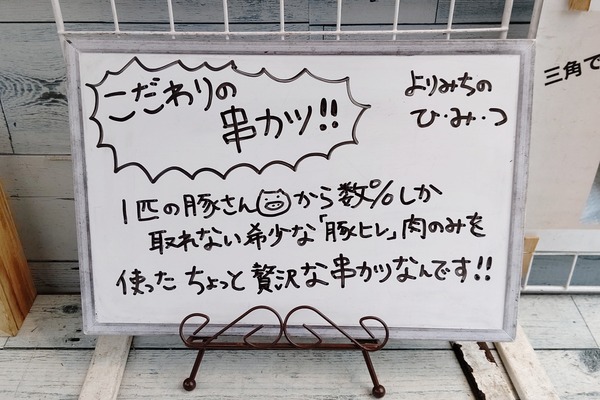 こだわりの
串カツ!!
よりみちの
ひ・み・つ
1匹の豚さんから数%しか
取れない希少な「豚ヒレ」肉のみを
使ったちょっと贅沢な串カツなんです!!
三角で